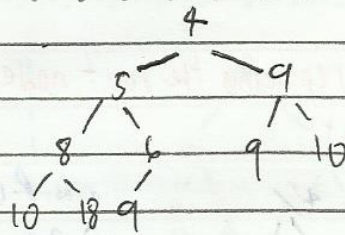 4
5 9
8 6 9 10
10 18 9